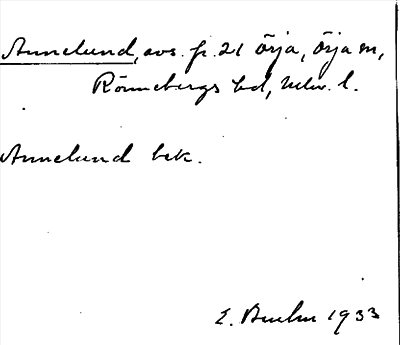 Annelund, avs. fr. 21 Örja, Örja sn,
Rönnebergs hd, Malm. l.
Annelund bek.
E. 1933